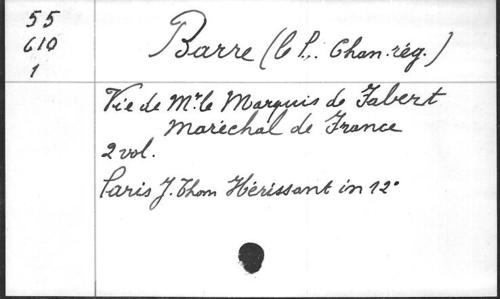 55
610
1
Barre (le P., Chan. rég.)
Vie de Mr. le Marquis de Fabert
Maréchal de France
2 vol.
Paris J. Thom Hérissant in 12°